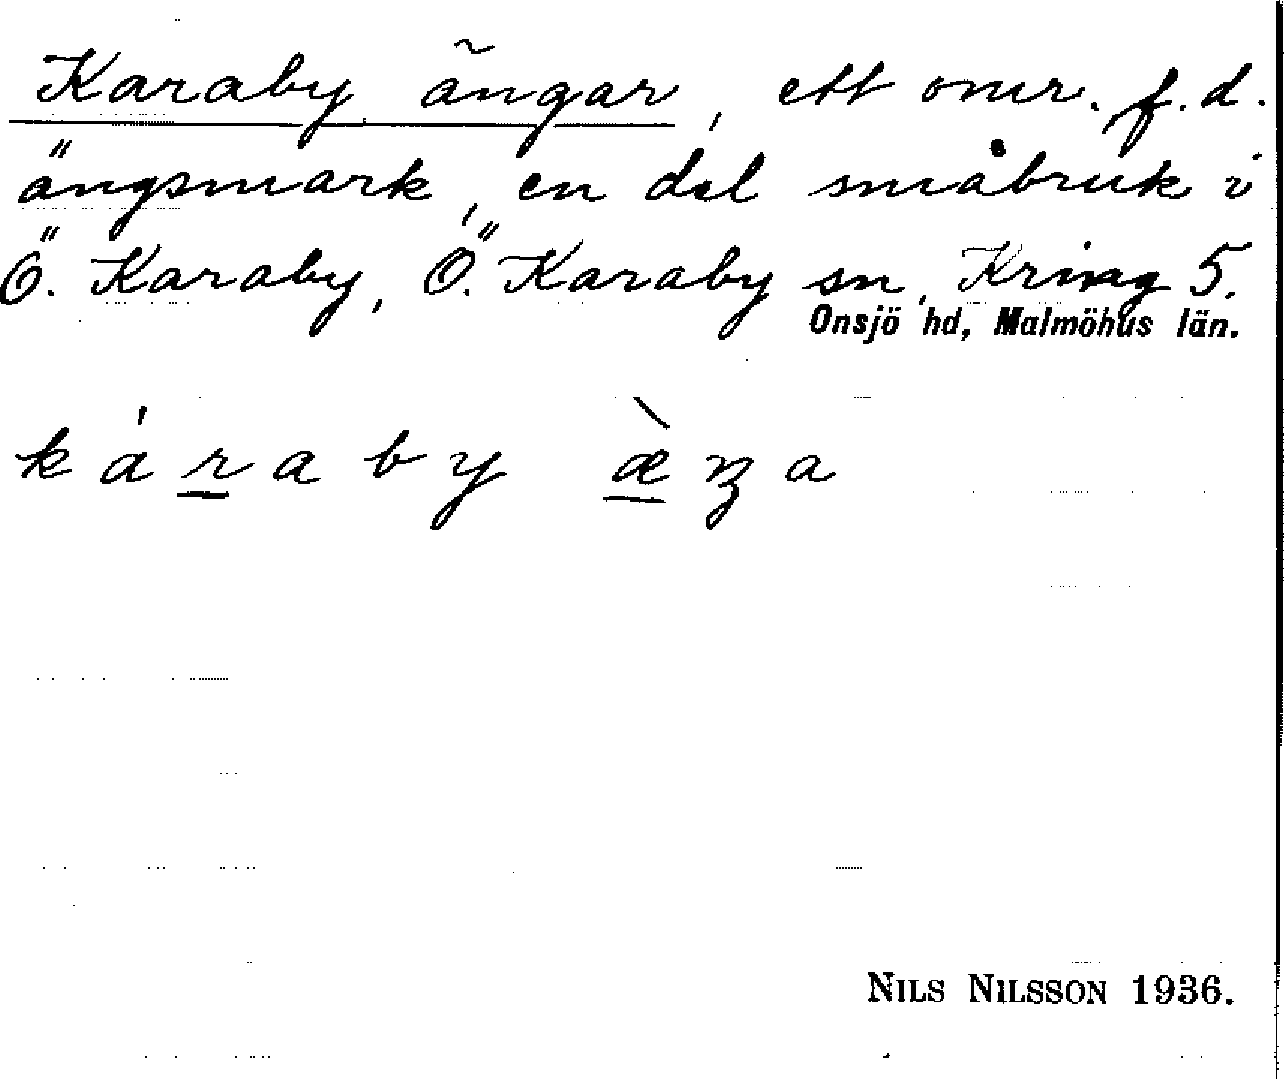 Karaby ängar, ett omr. f.d.
ängsmark, en del småbruk i
Ö. Karaby, Ö. Karaby sn, Kring 5.
Onsjö hd, Malmöhus län.
káraby æ̀ŋa
NILS NILSSON 1936.